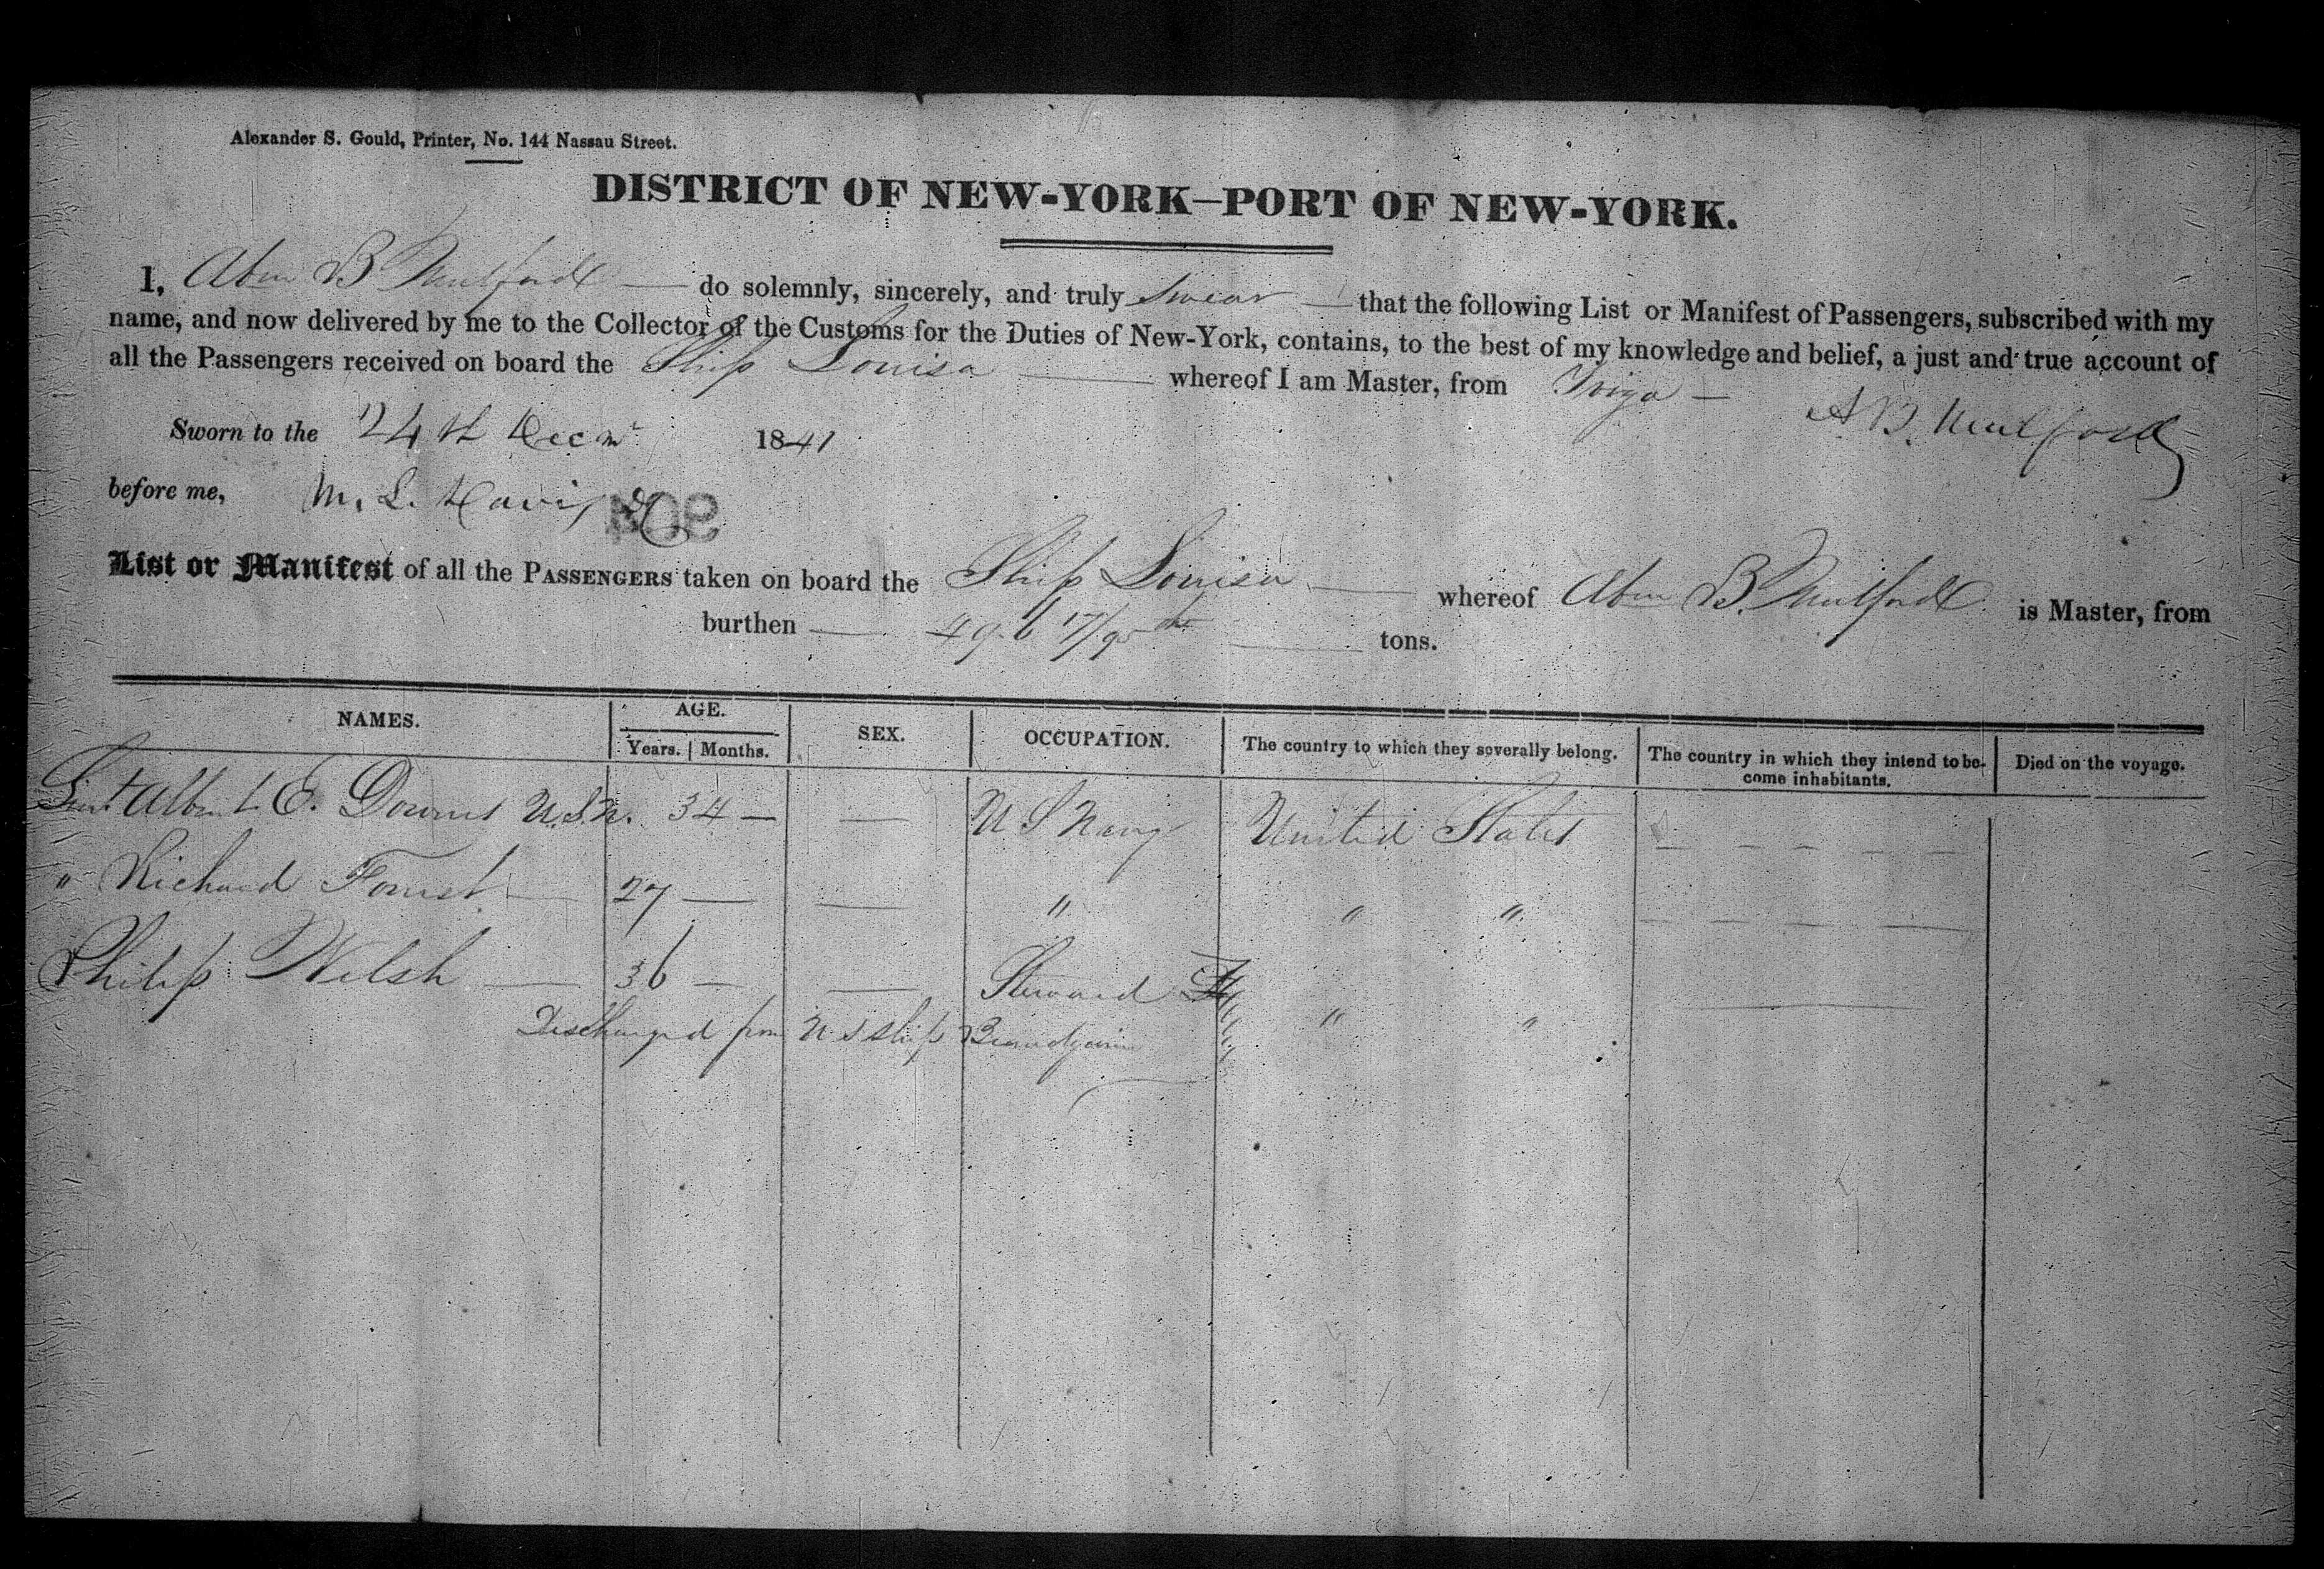 Alexander S. Gould, Printer, No. 144 Nassau Street.
DISTRICT OF NEW-YORK—PORT OF NEW-YORK.
I, Abm B Mulford — do solemnly, sincerely, and truly swear — that the following List or Manifest of Passengers, subscribed with my
name, and now delivered by me to the Collector of the Customs for the Duties of New-York, contains, to the best of my knowledge and belief, a just and true account of
all the Passengers received on board the Ship Louisa — whereof I am Master, from —
A B. Mulford
Sworn to the 24th Decmr 1841
before me, M. L. Davis
List or Manifest of all the PASSENGERS taken on board the Ship Louisa — whereof Abm B. Mulford is Master, from
burthen — 496 17/95ths — tons.
NAMES. AGE. SEX. OCCUPATION. The country to which they severally belong. The country in which they intend to become inhabitants. Died on the voyage.
Years. Months.
Lieut Albert E. Downes U.S.N. 34 — — U S Navy United States — — — — —
" Richard Forrest — 27 — — " " " — — — —
Philip Welsh — 36 — — Steward " " —
Discharged from U S Ship Brandywine